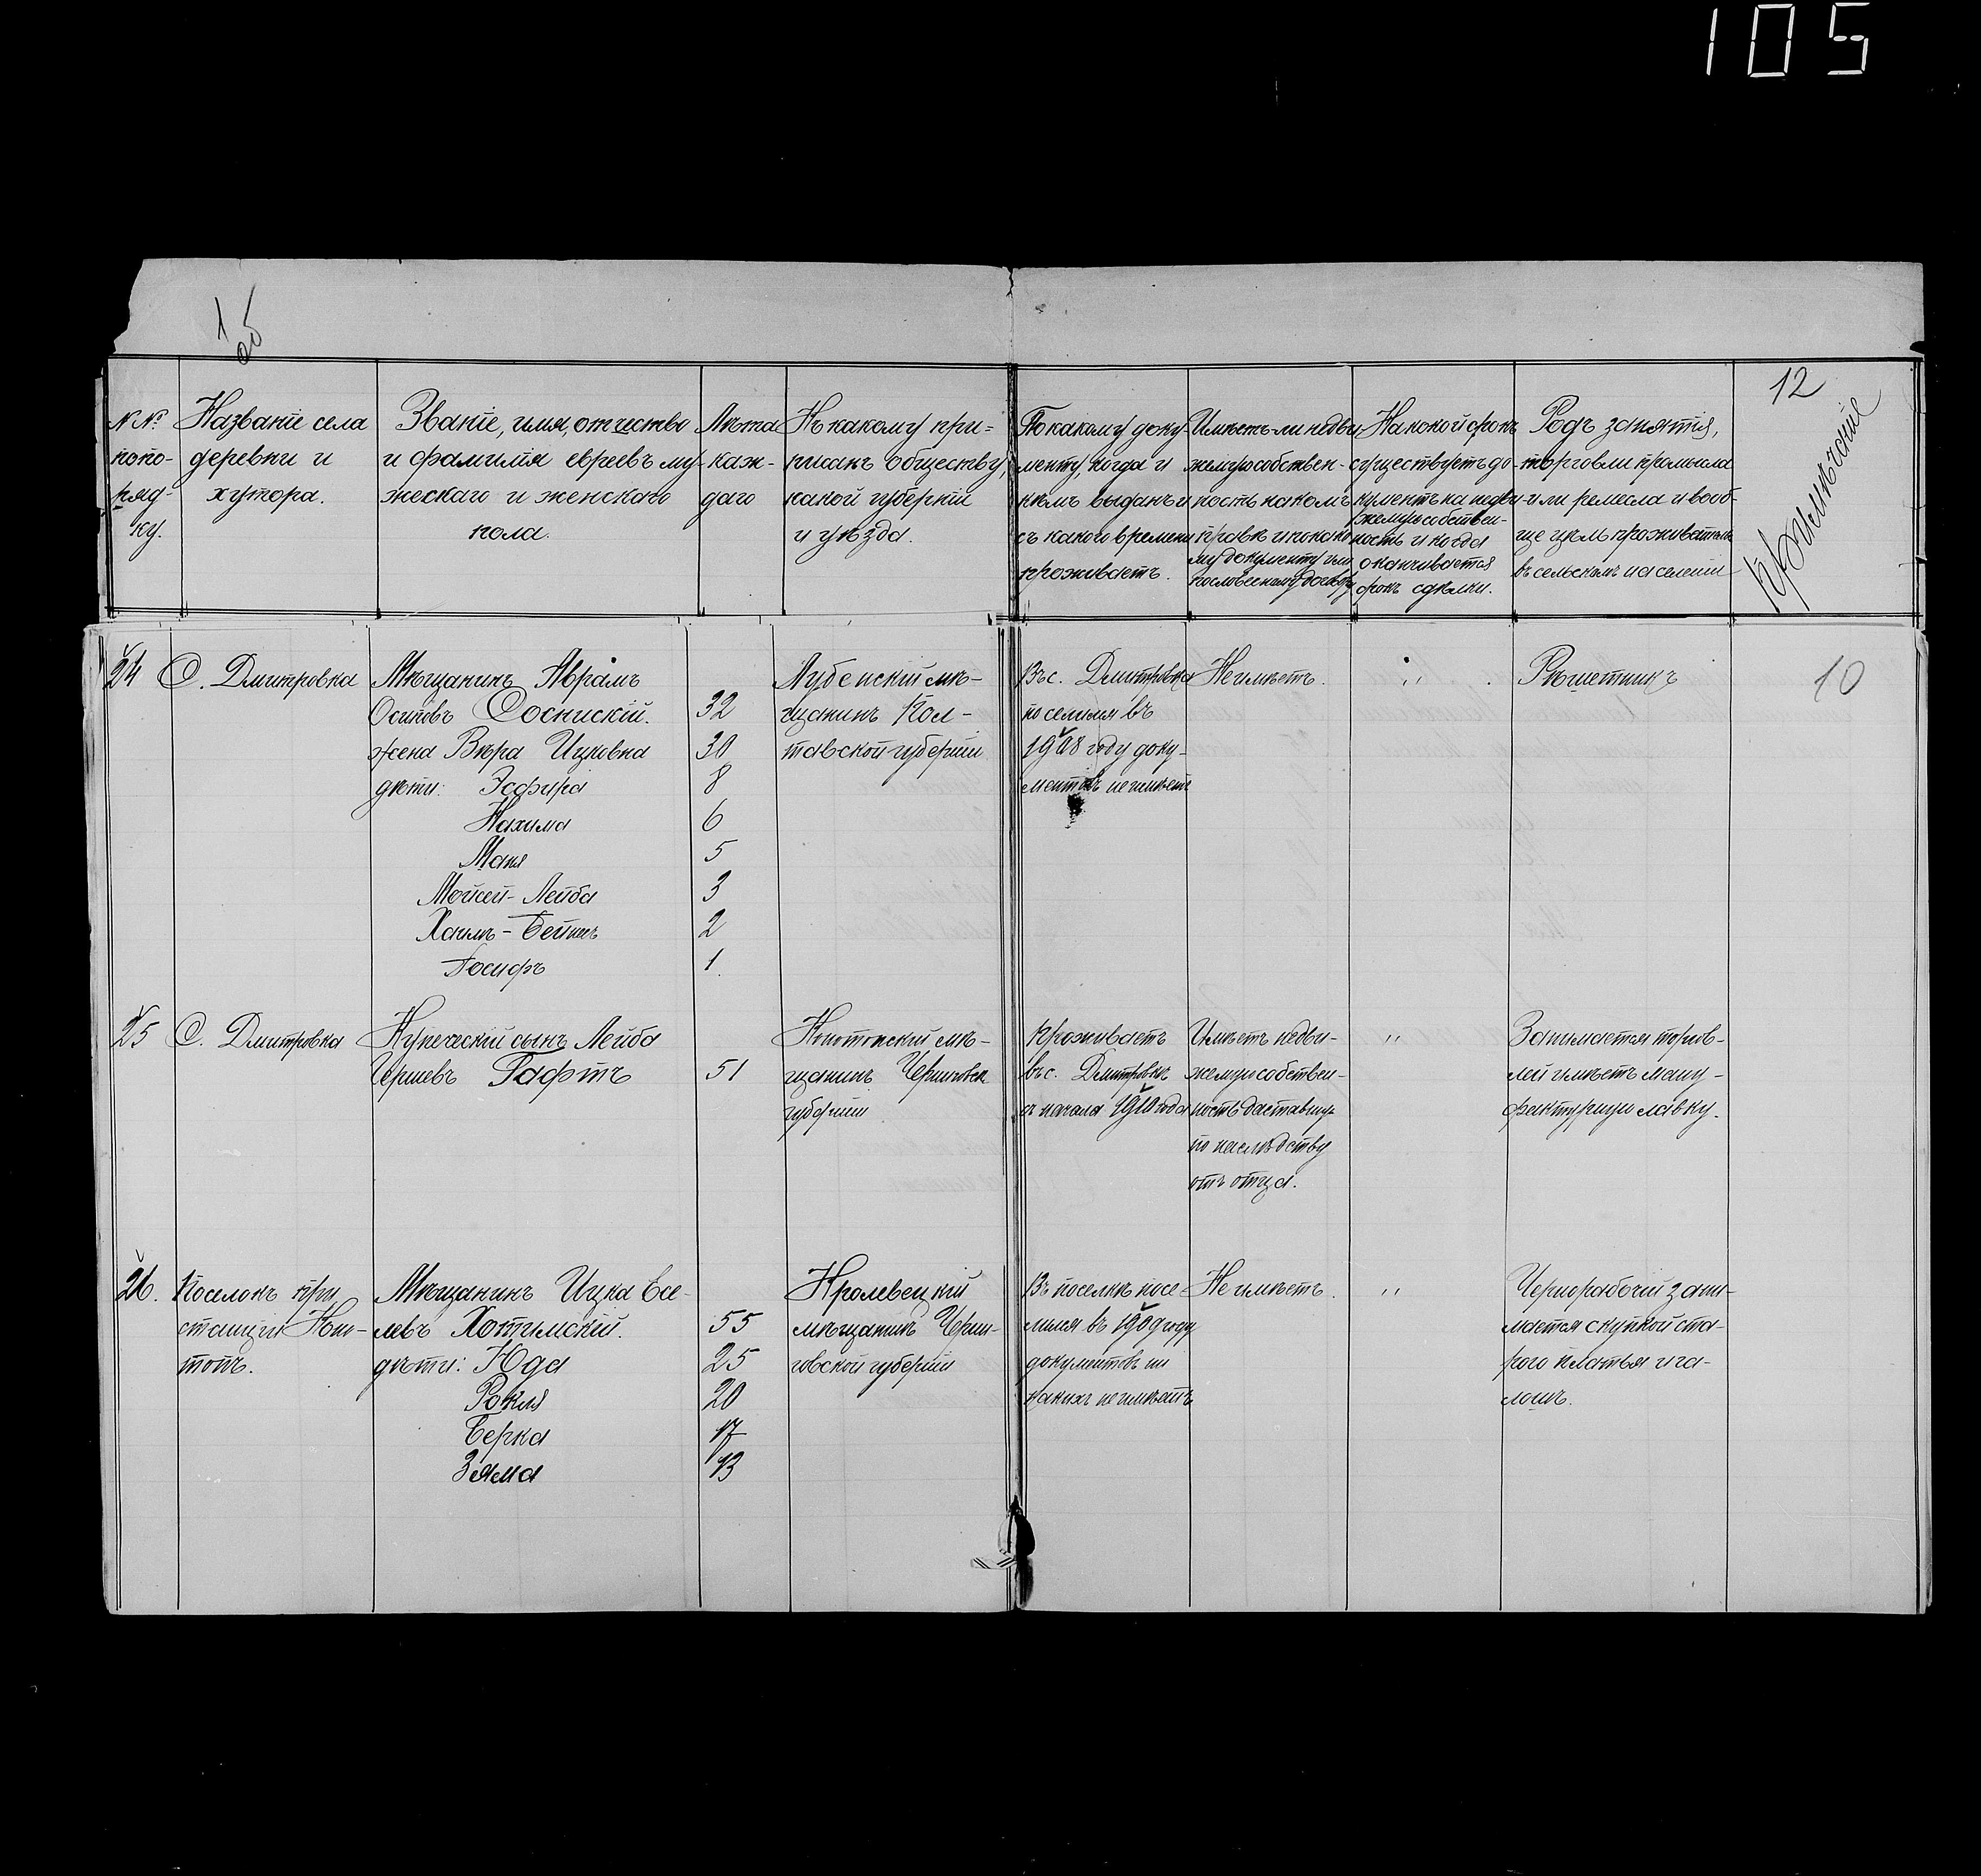 105
1
об
12
№№
попо-
ряд-
ку.
Названіе села
деревни и
хутора.
Званіе, имя, отчество
и фамилія евреевъ му-
жескаго и женскаго
пола.
Лѣта
каж-
даго
Къ какому при-
писанъ обществу,
какой губерніи
и уѣзда.
По какому доку-
менту, когда и
кѣмъ выданъ и
съ какого времени
проживаетъ.
Имѣетъ-ли недви
жимую собствен-
ность на какомъ
правѣ и по како
му документу или
словесному договору
На какой срокъ
существуетъ до-
кументъ на недви
жимую собствен-
ность и когда
оканчивается
срокъ сдѣлки.
Родъ занятія,
торговли промысла
или ремесла и вооб-
ще цѣль проживательства
въ сельскомъ населеніи
Примѣчаніе
24
С. Дмитровка
Мѣщанинъ Абрамъ
Осиповъ Соснискій.
32
жена Вѣра Ицковна
30
дѣти: Эсфира
8
Нахима
6
Маня
5
Мойсей-Лейба
3
Хаимъ-Бейнас
2
Іосифъ
1
Лубенскій мѣ-
щанинъ Пол-
тавской губерніи
Въ с. Дмитровка
поселился въ
1908 году доку-
ментовъ не имѣетъ
Не имѣетъ.
"
Рѣшетникъ
10
25
С. Дмитровка
Купеческій сынъ Лейба
Гершевъ Гафтъ
51
Конотопскій мѣ-
щанинъ Черниговск
губерніи
Проживаетъ
въ с. Дмитровкѣ
съ начала 1910 года
Имѣетъ недви-
жимую собствен-
ность даставшуюся
по наслѣдству
отъ отца.
"
Занимается торгов-
лей имѣетъ ману-
фактурную лавку.
26.
Поселокъ при
станціи Коно-
топъ.
Мѣщанинъ Ицка Есе-
левъ Хотимскій.
55
дѣти: Юда
25
Рокля
20
Берка
17
Зяма
13
Кролевецкій
мѣщанинъ Черни-
говской губерніи
Въ поселкѣ посе-
лился въ 1909 году
документовъ ни
какихъ не имѣетъ
Не имѣетъ.
"
Чернорабочій зани-
мается скупкой ста-
рого платья и га-
лошъ.